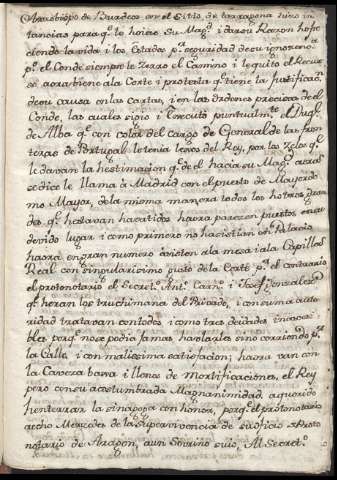 Arzobispo de Burdeos en el Sitio de tarragona hizo in
tancias para q.e le hoiese su Mag.d i dar su Razon hofre
ciendo la vida i los Estados p.a seguridad de su ignocenci
p.o el Conde siempre le zerro el Camino i le quito el Recur
so aora biene a la Corte i protesta q.e tiene la Justificaçõ
de su causa en las Cartas, i en las Ordenes precisas del
Conde, las cuales siguio i Executó puntualm.te el Duq.e
de Alba q.e con color del cargo de General de las fron
teras de Portugal le tenia lexos del Rey, por los zelos q.e
le davan la hestimacion q.e de el hacia su Mag.d aora
se dice le llama à Madrid con el puesto de Mayordo
mo Mayor, de la misma manera todos los hotros Gran
des q.e hestavan habatidos haora parezen puestos en su
devido lugar i como primero no hasistian en Palacio
haora en gran numero asisten a la mesa i a la Capilla
Real con singularisimo gusto de la Corte p.o el contrario
el protonotario el Secret.o Ant.o Carn.o i Josef Gonzalez
q.e heran los truchimanes del Privado, i con suma auto
ridad tratavan con todos i como tres deidades inacsesi
bles porq.e no se podia jamas hablarles sino corriendo p.r
la Calle, i con malissima satisfacion; haora van con
la Caveza baxa i llenos de mortificaciones, el Rey
pero con su acostumbrada Magnanimidad, a querido
henterrar la sinagoga con honor, porq.e al protonotario
a echo Merzedes de la Supervivencia de su oficio de Proto
notario de Aragon, a un Sovrino suio, Al Secret.o